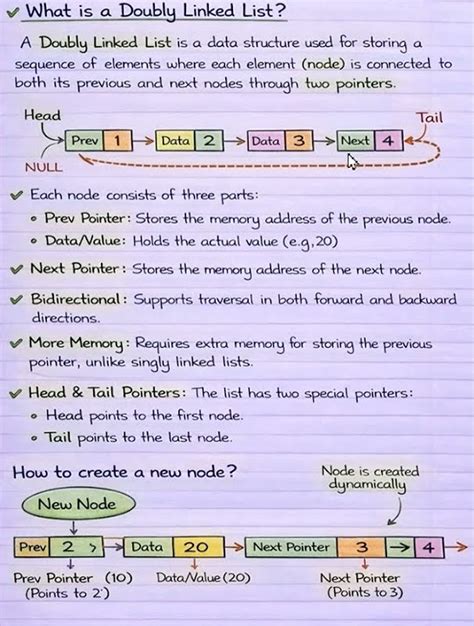 ✓ What is a Doubly Linked List?
A Doubly Linked List is a data structure used for storing a
sequence of elements where each element (node) is connected to
both its previous and next nodes through two pointers.
Head
Tail
Prev 1 Data 2 Data 3 Next 4
NULL
✓ Each node consists of three parts:
• Prev Pointer: Stores the memory address of the previous node.
• Data/Value: Holds the actual value (e.g,20)
✓ Next Pointer: Stores the memory address of the next node.
✓ Bidirectional: Supports traversal in both forward and backward
directions.
✓ More Memory: Requires extra memory for storing the previous
pointer, unlike singly linked lists.
✓ Head & Tail Pointers: The list has two special pointers:
• Head points to the first node.
• Tail points to the last node.
How to create a new node?
Node is created
dynamically
New Node
Prev 2 > Data 20 Next Pointer 3 → 4
Prev Pointer (10) Data/Value (20) Next Pointer
(Points to 2) (Points to 3)